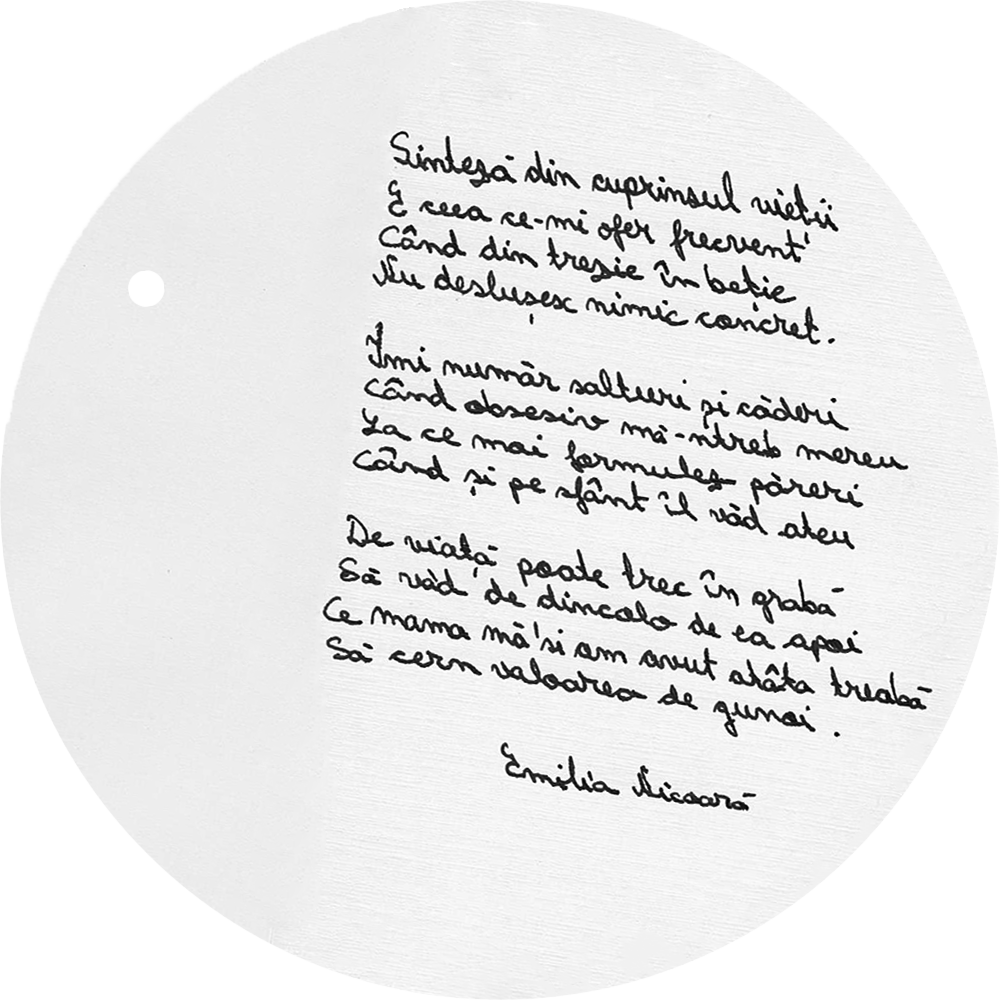 Sinteză din cuprinsul vieții
E ceea ce-mi ofer frecvent
Când din trezie în beție
Nu deslușesc nimic concret.
Îmi număr salturi și căderi
Când obsesiv mă-ntreb mereu
La ce mai formulez păreri
Când și pe sfânt îl văd ateu
De viață poate trec în grabă
Să văd de dincolo de ea apoi
Ce mama mă'si am avut atâta treabă
Să cern valoarea de gunoi.
Emilia Nicoară